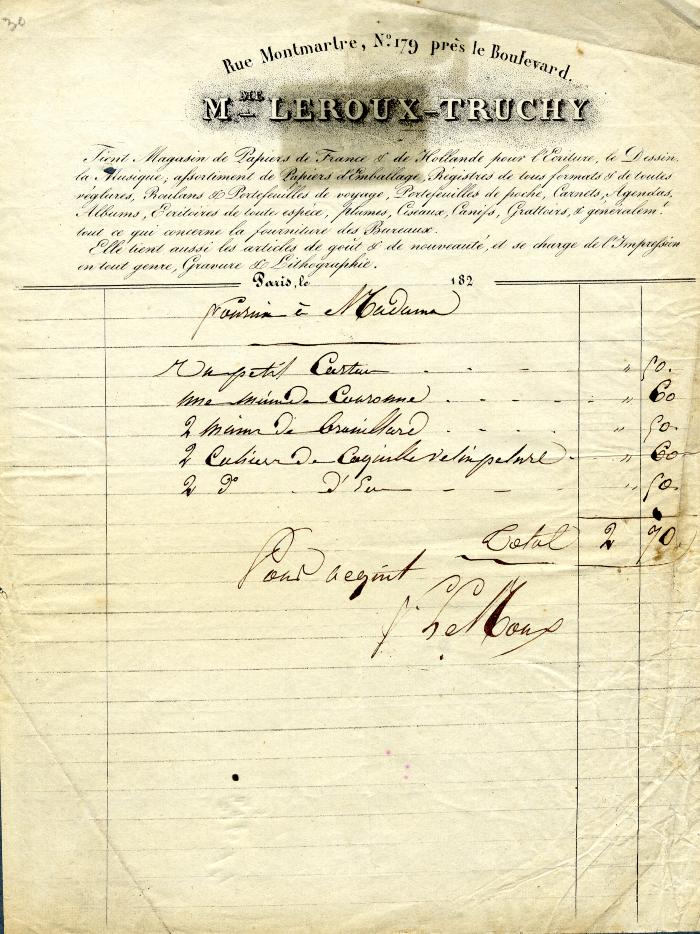 30
Rue Montmartre, No. 179 près le Boulevard.
MME LEROUX-TRUCHY
Tient Magasin de Papiers de France & de Hollande pour l'Ecriture, le Dessin,
la Musique, assortiment de Papiers d'Emballage, Régistres de tous formats & de toutes
réglures, Roulans & Portefeuilles de voyage, Portefeuilles de poche, Carnets, Agendas,
Albums, Ecritoires de toute espèce, plumes, Ciseaux, Canifs, Grattoirs, & généralemt.
tout ce qui concerne la fourniture des Bureaux.
Elle tient aussi les articles de goût & de nouveauté, et se charge de l'Impression
en tout genre, Gravure & Lithographie.
Paris, le 182
fourni à Madame
Un petit Carton " 50.
une main de Couronne " 60
2 mains de brouillard " 50.
2 Cahiers de Coquille vélin pelure " 60
2 do d'Eu " 50.
Total 2 70.
Pour acquit